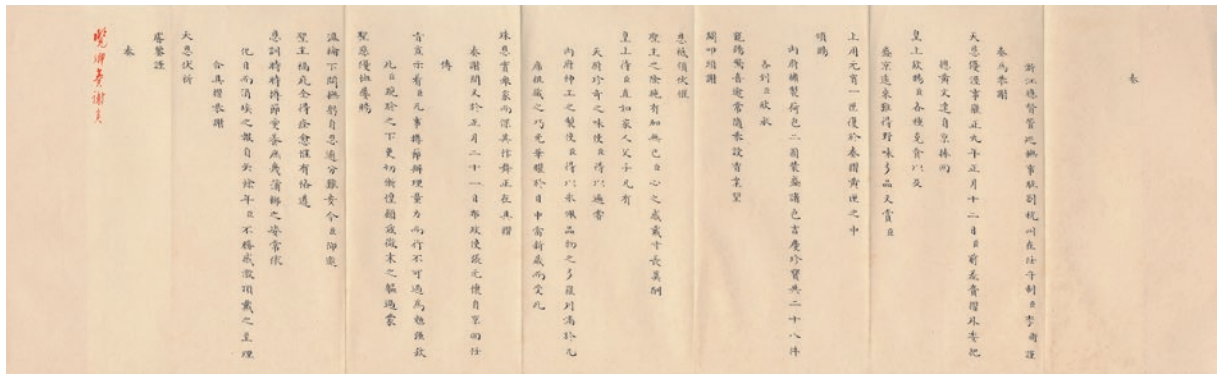 奏
浙江總督管巡撫事駐劄杭州在任守制臣李衛謹
奏為恭謝
天恩優渥事雍正九年正月十二日臣前差賫摺外委把
總黃文達自京捧回
皇上欽賜臣各種克食以及
盛京遠來難得野味多品又賞臣
上用元宵一匣復於奏摺黃匣之中
頒賜
內府繡製荷包二圍葉盛諸色吉慶珍寶共二十八件
各到臣欣承
寵錫驚喜逾常隨恭設香案望
闕叩頭謝
恩祗領伏惟
聖主之隆施有加無已臣心之感戴寸長莫酬
皇上待臣直如家人父子凡有
天廚珍奇之味使臣得以遍嘗
內府神工之製使臣得以永珮品物之多羅列滿於几
席組織之巧光華耀於目中當新歲而受此
殊恩實衆蒙而深異忭舞正在具摺
奏謝間又於正月二十一日布政使張元懷自京回任
傳
旨宣示看臣凡事撙節辦理量力而行不可過為勉強欽
此臣跪聆之下更切漸惶顧茲微末之軀過蒙
聖慈優恤屢賜
溫綸下問撫躬自思過分難安今臣仰邀
聖主福庇全得痊愈惟有恪遵
恩訓時時撙節愛養庶幾蒲柳之姿常依
化日而涓埃之報自矢餘年臣不勝感激頂戴之至理
合具摺恭謝
天恩伏祈
睿鑒謹
奏
覽卿奏謝矣